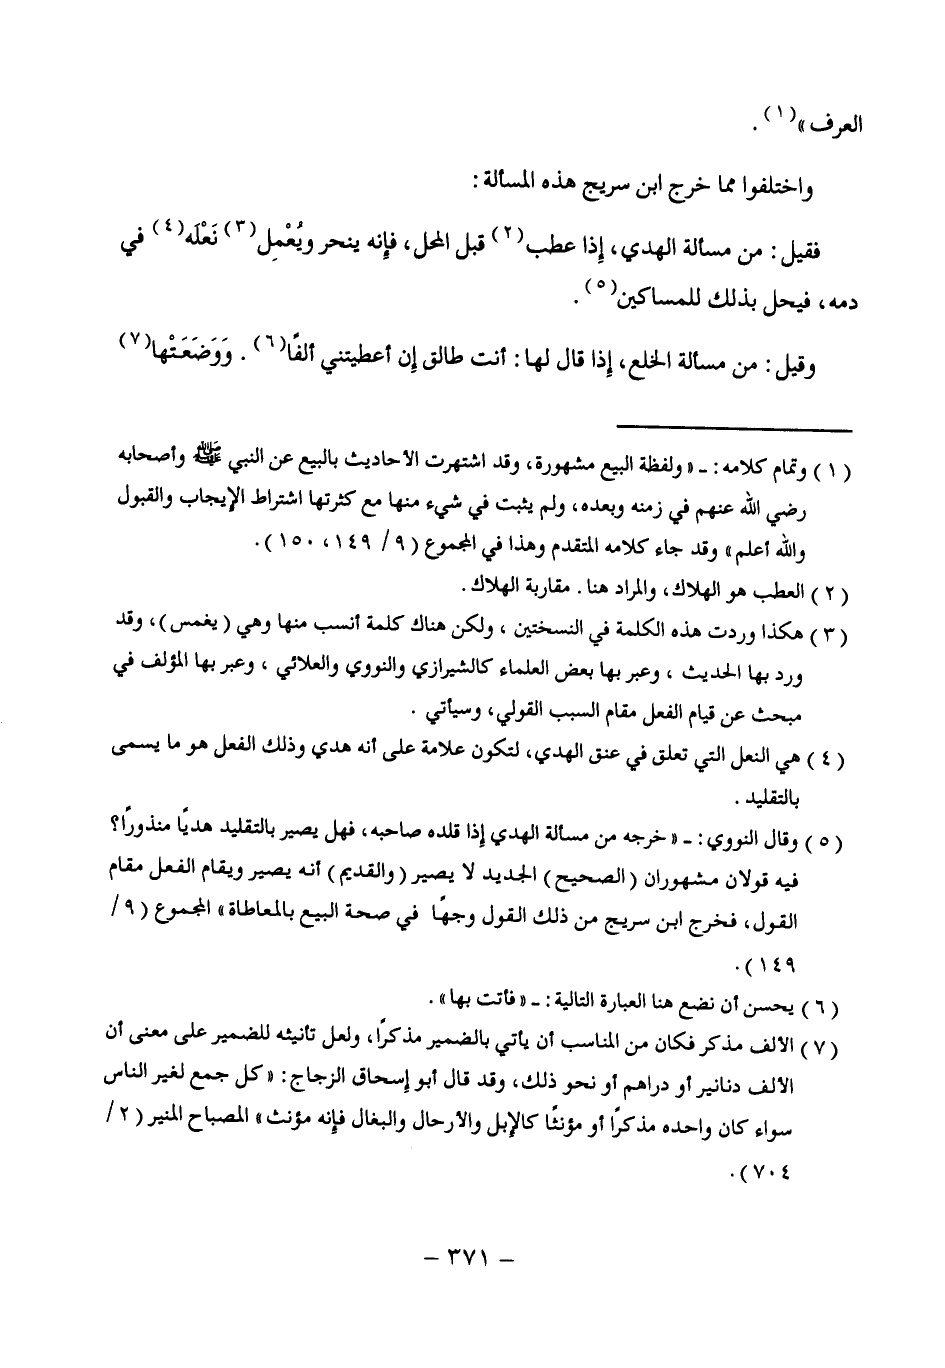 العرف»(١).
واختلفوا مما خرج ابن سريج هذه المسألة:
فقيل: من مسألة الهدي، إذا عطب(٢) قبل المحل، فإنه ينحر ويُعْمِل(٣) نَعْلَه(٤) في
دمه، فيحل بذلك للمساكين(٥).
وقيل: من مسألة الخلع، إذا قال لها: أنت طالق إن أعطيتني ألفًا(٦). وَوَضَعَتْها(٧)
(١) وتمام كلامه: ـ «ولفظة البيع مشهورة، وقد اشتهرت الأحاديث بالبيع عن النبي ﷺ وأصحابه
رضي الله عنهم في زمنه وبعده، ولم يثبت في شيء منها مع كثرتها اشتراط الإيجاب والقبول
والله أعلم» وقد جاء كلامه المتقدم وهذا في المجموع (٩/ ١٤٩، ١٥٠).
(٢) العطب هو الهلاك، والمراد هنا. مقاربة الهلاك.
(٣) هكذا وردت هذه الكلمة في النسختين، ولكن هناك كلمة أنسب منها وهي (يغمس)، وقد
ورد بها الحديث، وعبر بها بعض العلماء كالشيرازي والنووي والعلائي، وعبر بها المؤلف في
مبحث عن قيام الفعل مقام السبب القولي، وسيأتي.
(٤) هي النعل التي تعلق في عنق الهدي، لتكون علامة على أنه هدي وذلك الفعل هو ما يسمى
بالتقليد.
(٥) وقال النووي: ـ «خرجه من مسألة الهدي إذا قلده صاحبه، فهل يصير بالتقليد هديًا منذورًا؟
فيه قولان مشهوران (الصحيح) الجديد لا يصير (والقديم) أنه يصير ويقام الفعل مقام
القول، فخرج ابن سريج من ذلك القول وجهًا في صحة البيع بالمعاطاة» المجموع (٩/
١٤٩).
(٦) يحسن أن نضع هنا العبارة التالية: ـ «فأتت بها».
(٧) الألف مذكر فكان من المناسب أن يأتي بالضمير مذكرًا، ولعل تأنيثه للضمير على معنى أن
الألف دنانير أو دراهم أو نحو ذلك، وقد قال أبو إسحاق الزجاج: «كل جمع لغير الناس
سواء كان واحده مذكرًا أو مؤنثًا كالإبل والأرحال والبغال فإنه مؤنث» المصباح المنير (٢/
٧٠٤).
– ٣٧١ –